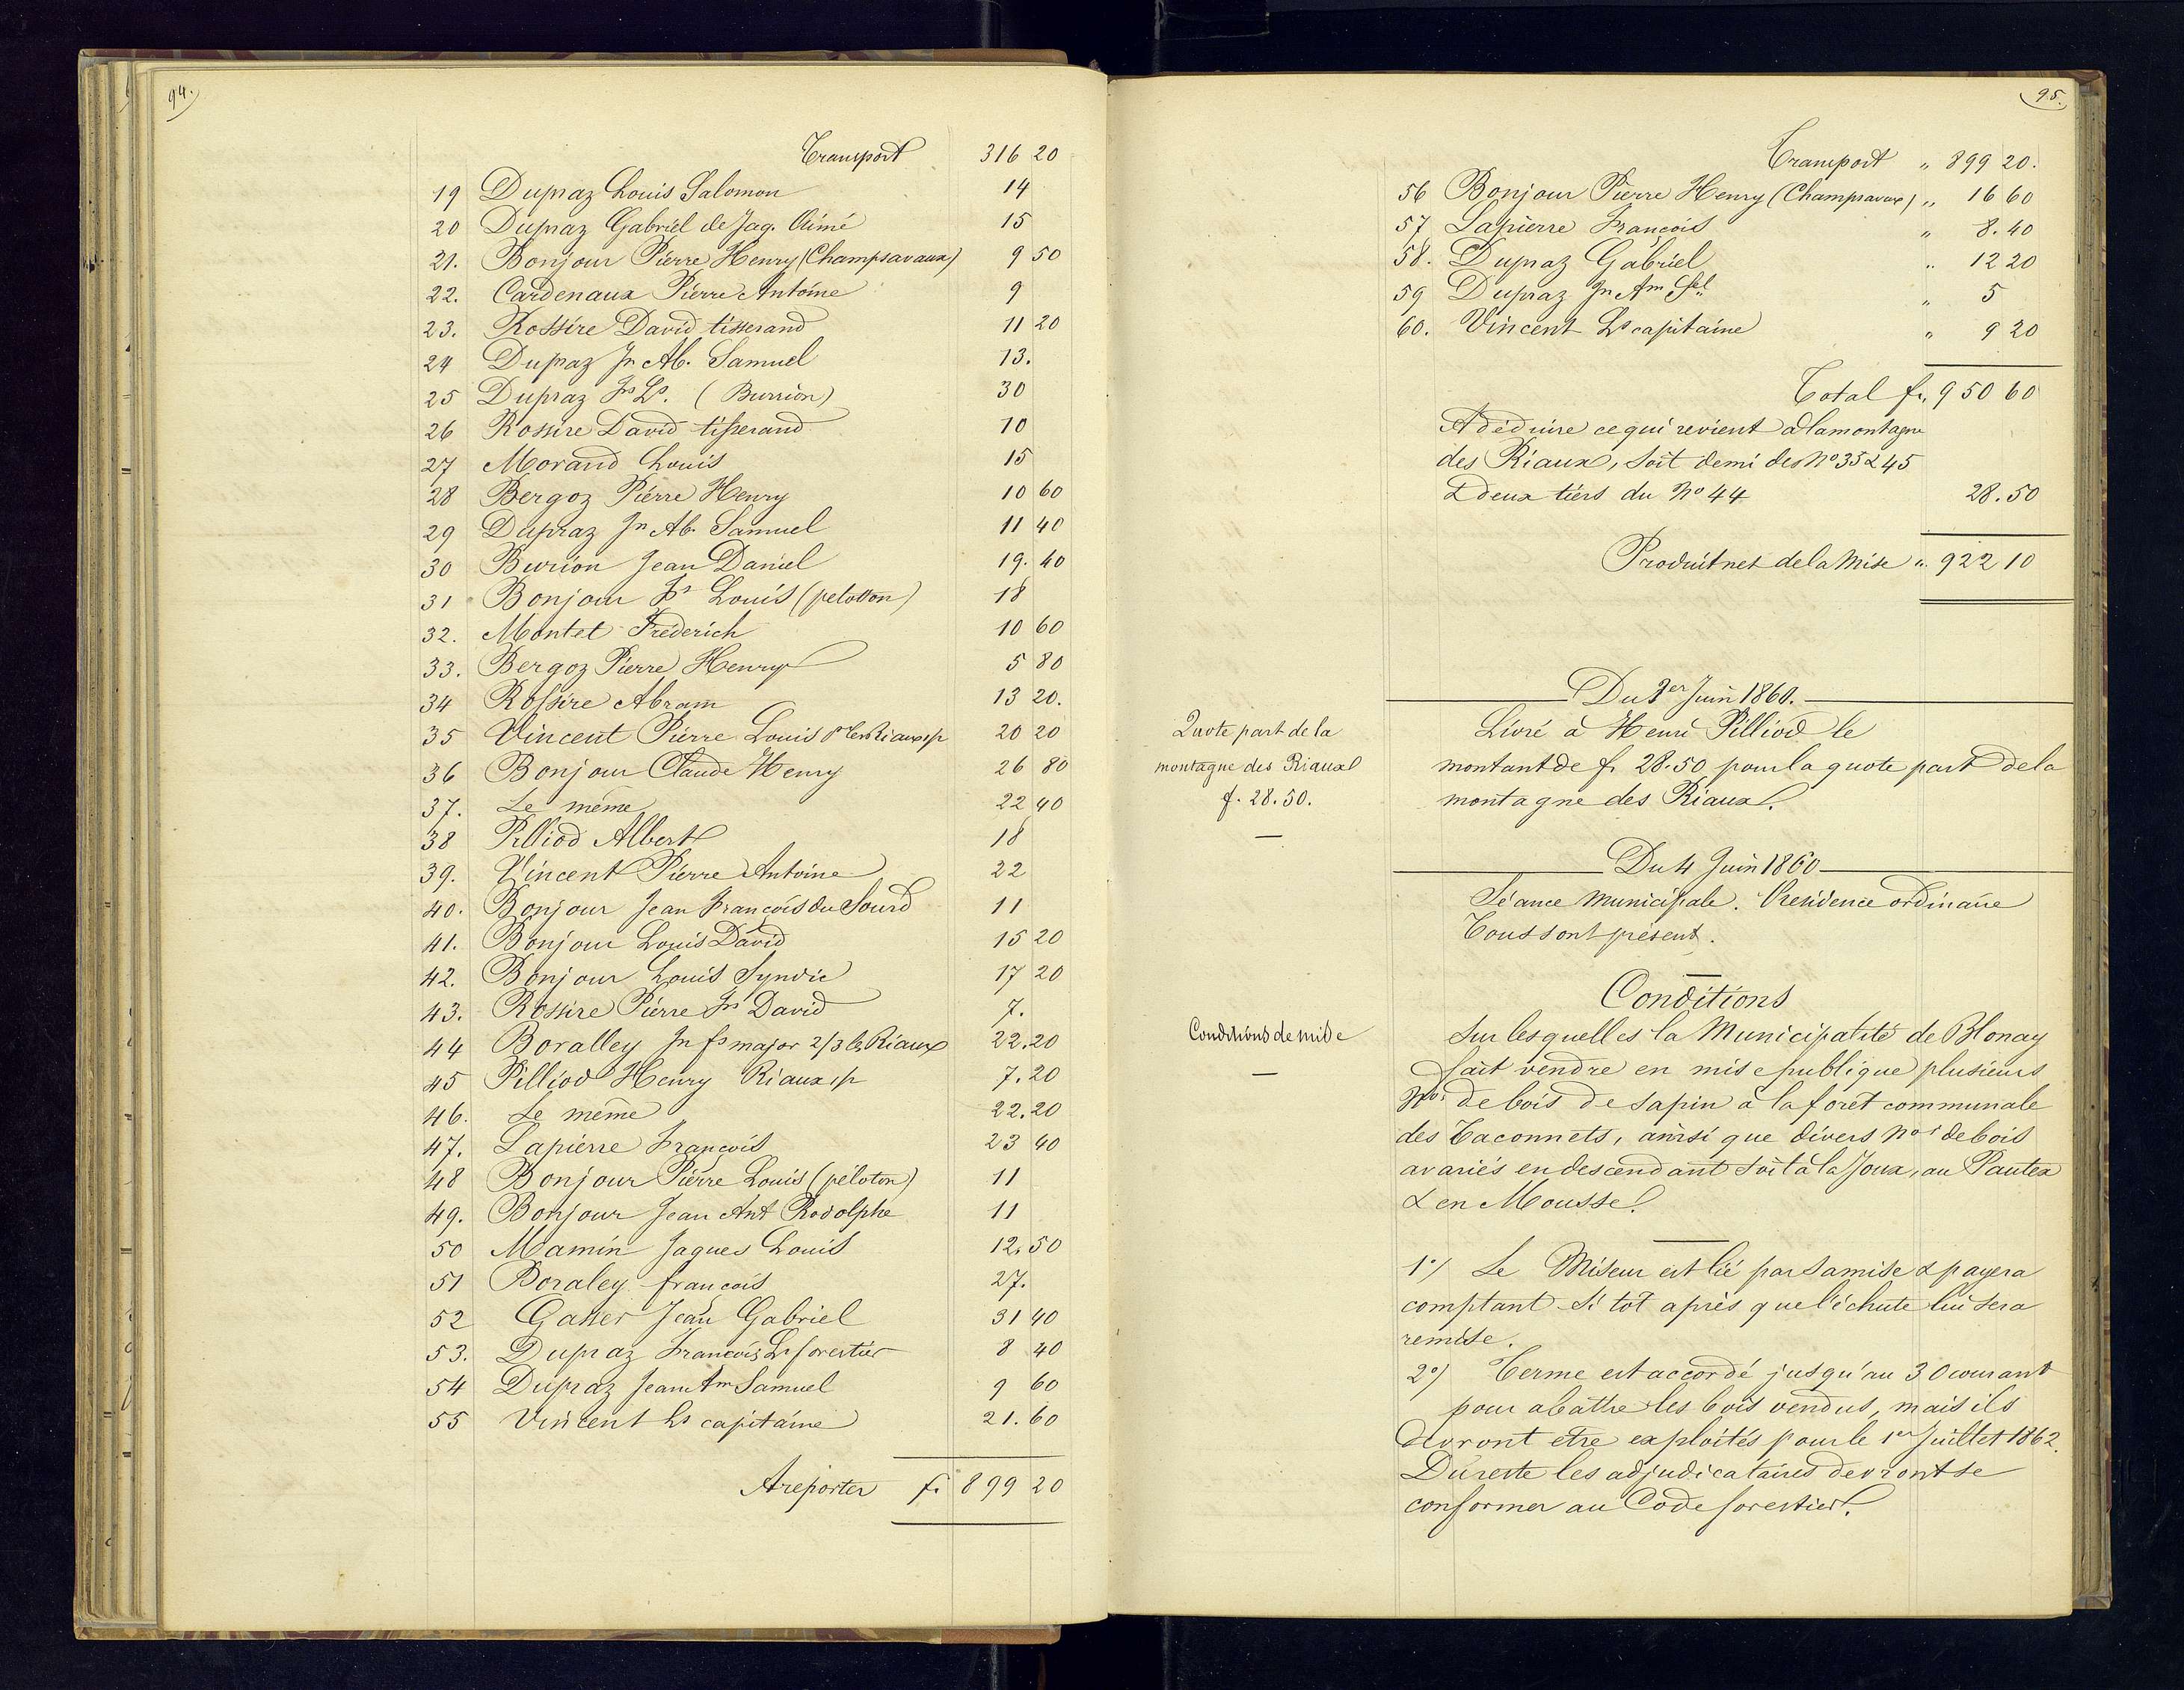 94.
Transport 316 20
19 Dupraz Louis Salomon 14
20 Dupraz Gabriel de Jaq. Aimé 15
21. Bonjour Pierre Henry (Champsavaux) 9 50
22. Cardenaux Pierre Antoine 9
23. Rossire David tisserand 11 20
24 Dupraz Jn Ab. Samuel 13.
25 Dupraz Jn Ls. (Burrion) 30
26 Rossire David tisserand 10
27 Morand Louis 15
28 Bergoz Pierre Henry 10 60
29 Dupraz Jn Ab. Samuel 11 40
30 Burion Jean Daniel 19. 40
31 Bonjour Fs Louis (pelotton) 18
32. Montet Fréderich 10 60
33. Bergoz Pierre Henry 5 80
34 Rossire Abram 13 20.
35 Vincent Pierre Louis les Riaux 20 20
36 Bonjour Claude Henry 26 80
37. Le même 22 40
38 Pilliod Albert 18
39. Vincent Pierre Antoine 22
40. Bonjour Jean François du Sourd 11
41. Bonjour Louis David 15 20
42. Bonjour Louis Syndic 17 20
43. Rossire Pierre Fs David 7.
44 Boralley Jn fs major 2/3 les Riaux 22.20
45 Pilliod Henry Riaux 7.20
46. Le même 22.20
47. Lapierre François 23 40
48 Bonjour Pierre Louis (peloton) 11
49. Bonjour Jean Ant Rodolphe 11
50 Mamin Jaques Louis 12.50
51 Boraley françois 27.
52 Gasser Jean Gabriel 31 40
53. Dupraz François Ls forestier 8 40
54 Dupraz Jean Am Samuel 9 60
55 Vincent Ls capitaine 21.60
A reporter f. 899 20
95.
Transport " 899 20.
56 Bonjour Pierre Henry (Champsavaux) " 16 60
57 Lapierre François " 8.40
58. Dupraz Gabriel " 12 20
59 Dupraz Jn Am Sel " 5
60. Vincent Ls capitaine " 9 20
Total fr. 950 60
A déduire ce qui revient à la montagne
des Riaux, soit demi des No 35 & 45
& deux tiers du No 44 28.50
Produit net de la Mise " 922 10
Du 1er Juin 1860.
Quote part de la
montagne des Riaux
f. 28.50.
Livré à Henri Pilliod le
montant de f. 28.50 pour la quote part de la
montagne des Riaux.
Du 4 Juin 1860
Séance Municipale. Présidence ordinaire
Tous sont présent.
Conditions
Conditions de mise
sur lesquelles la Municipalité de Blonay
fait vendre en mise publique plusieurs
Nos de bois de sapin à la forêt communale
des Taconnets, ainsi que divers Nos de bois
avariés en descendant soit à la Joux, au Pautex
& en Mousse.
1o/ Le Miseur est lié par sa mise & payera
comptant si tôt après que l'échute lui sera
remise.
2o/ Terme est accordé jusqu'au 30 courant
pour abattre les bois vendus, mais ils
devront etre exploités pour le 1er Juillet 1862.
Du reste les adjudicataires devront se
conformer au Code forestier.